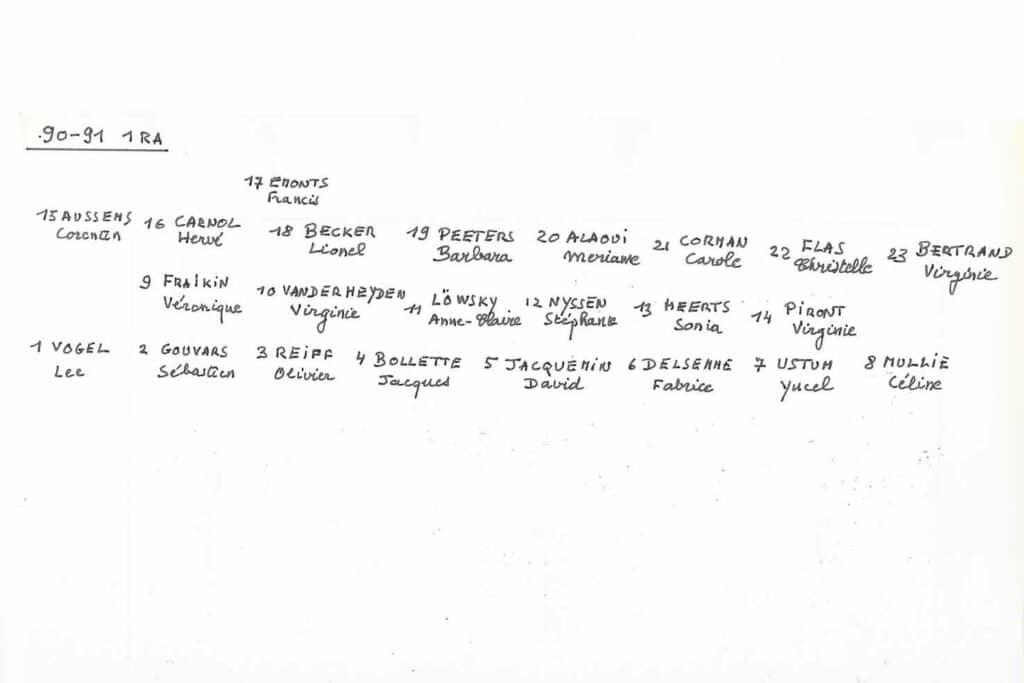 90-91 1RA
17 EMONTS
Francis
15 AUSSEMS 16 CARNOL 18 BECKER 19 PEETERS 20 ALAOUI 21 CORMAN 22 FLAS 23 BERTRAND
Corentin Hervé Lionel Barbara Meriame Carole Christelle Virginie
9 FRAIKIN 10 VANDERHEYDEN 11 LÖWSKY 12 NYSSEN 13 HEERTS 14 PIRONT
Véronique Virginie Anne-Claire Stéphanie Sonia Virginie
1 VOGEL 2 GOUVARS 3 REIFF 4 BOLLETTE 5 JACQUEMIN 6 DELSEMME 7 USTUM 8 MULLIE
Lee Sébastien Olivier Jacques David Fabrice Yucel Céline